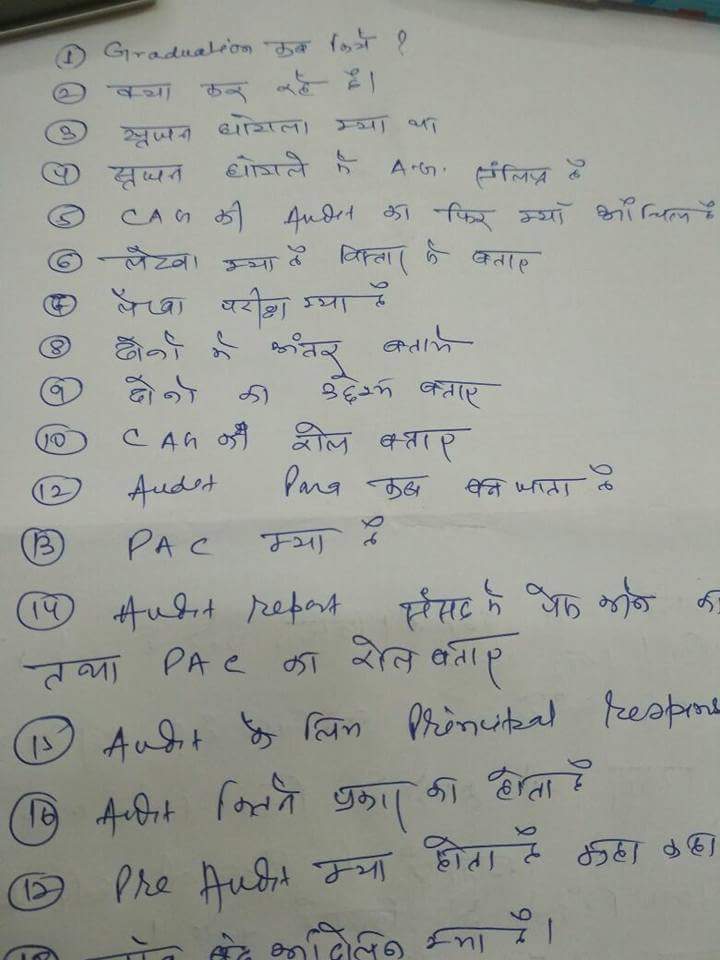 ① Graduation कब किये ?
② क्या कर रहे है।
③ सृजन घोटाला क्या था
④ सृजन घोटाले मे A.G. संलिप्त है
⑤ CAG की Audit का फिर क्या औचित्य है
⑥ लेखा क्या है विस्तार से बताए
⑦ लेखा परीक्षा क्या है
⑧ दोनो मे अंतर बताये
⑨ दोनो का उद्देश्य बताए
⑩ CAG की रोल बताए
⑫ Audit Para कब बन जाता है
⑬ PAC क्या है
⑭ Audit report संसद मे पेश करने का
तथा PAC का रोल बताए
⑮ Audit के लिए
⑯ Audit कितने प्रकार का होता है
Pre Audit क्या होता है कहा कहा
आंदोलन क्या है।